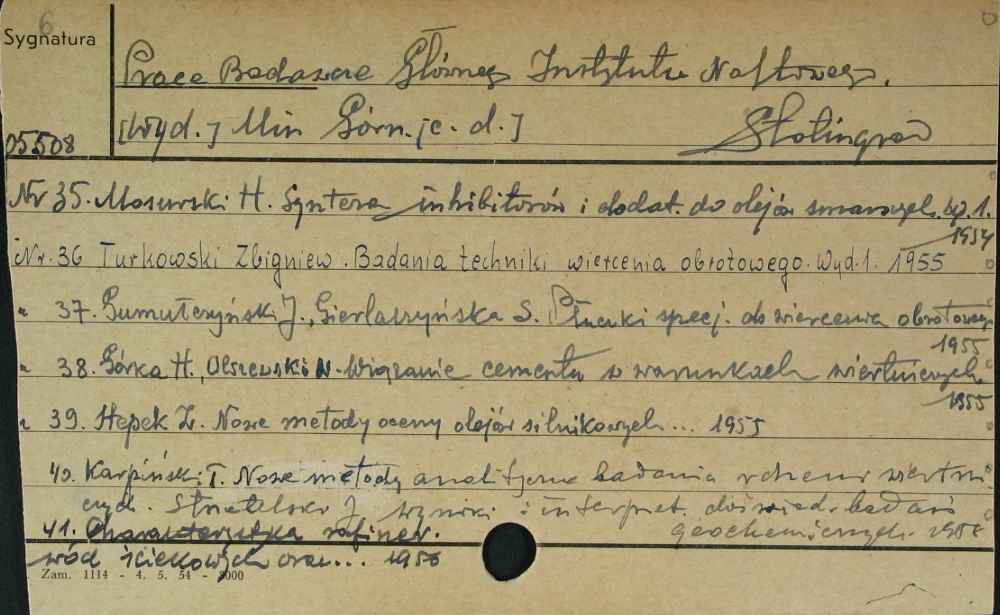 6
Sygnatura
Prace Badawcze Głównego Instytutu Naftowego.
05508
[Wyd.] Min Górn. [c. d.] Stalinogród
Nr 35. Mosurski H. Synteza inhibitorów i dodat. do olejów smarowych. Wyd. 1.
1954
Nr. 36 Turkowski Zbigniew. Badania techniki wiercenia obrotowego. Wyd. 1. 1955
" 37. Gumułczyński J., Gierlaszyńska S. Płuczki specj. do wiercenia obrotowego
1955
" 38. Górka H., Olszewski W. Wiązanie cementu w warunkach wiertniczych.
1955
" 39. Hepek Z. Nowe metody oceny olejów silnikowych... 1955
40. Karpiński T. Nowe metody analityczne badania rdzeni wiertni
czych. J wyniki i interpret. doświad. badań
geochemicznych. 1956
41. Charakterystyka rafiner.
wód ściekowych oraz... 1956
Zam. 1114 - 4. 5. 54 - 8000